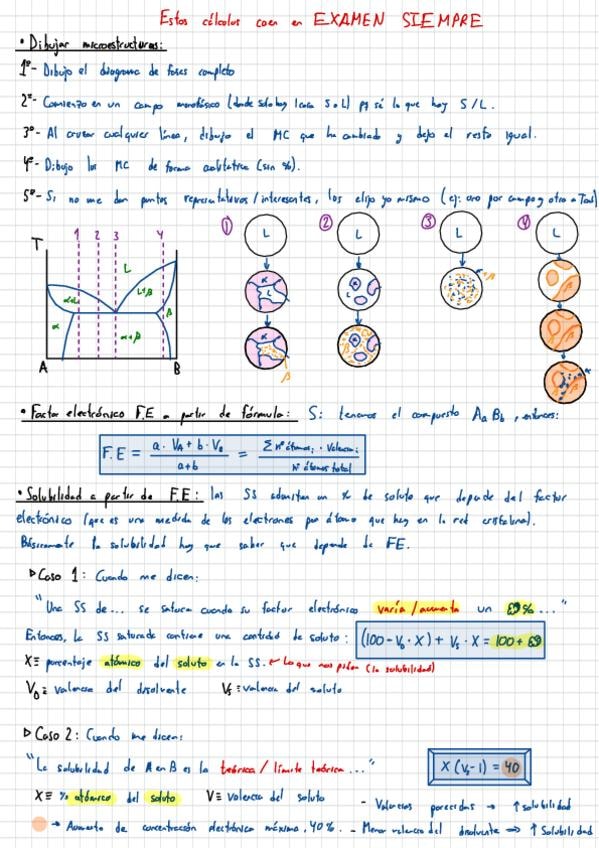 Estos cálculos caen en EXAMEN SIEMPRE
• Dibujar microestructuras:
1º- Dibujo el diagrama de fases completo
2º- Comienzo en un campo monofásico (donde solo hay 1 cosa S o L) pq sé lo que hay S/L.
3º- Al cruzar cualquier línea, dibujo el MC que ha cambiado y dejo el resto igual.
4º- Dibujo los MC de forma cualitativa (sin %).
5º- Si no me dan puntos representativos/interesantes, los elijo yo mismo (ej: uno por campo y otro a Tamb)
T 1 2 3 4
L
α+L L+β
α α+β β
A B
① L α L β
② L α
③ L α+β
④ L α
• Factor electrónico F.E a partir de fórmula: Si tenemos el compuesto AaBb, entonces:
F.E = a · VA + b · VB / a+b = Σ nº átomosi · Valenciai / Nº átomos total
• Solubilidad a partir de F.E: las SS admiten un % de soluto que depende del factor
electrónico (que es una medida de los electrones por átomo que hay en la red cristalina).
Básicamente la solubilidad hay que saber que depende de FE.
▷ Caso 1: Cuando me dicen:
"Una SS de... se satura cuando su factor electrónico varía/aumenta un %..."
Entonces, la SS saturada contiene una cantidad de soluto: (100 - V0 · X) + Vs · X = 100 +
X ≡ porcentaje atómico del soluto en la SS. ← Lo que nos piden (la solubilidad)
V0 ≡ valencia del disolvente Vs ≡ valencia del soluto
▷ Caso 2: Cuando me dicen:
"La solubilidad de A en B es la teórica/límite teórica..." X (Vs - 1) = 40
X ≡ % atómico del soluto V ≡ Valencia del soluto
- Valencias parecidas → ↑ solubilidad
→ Aumento de concentración electrónica máximo, 40%. - Menor valencia del disolvente → ↑ Solubilidad